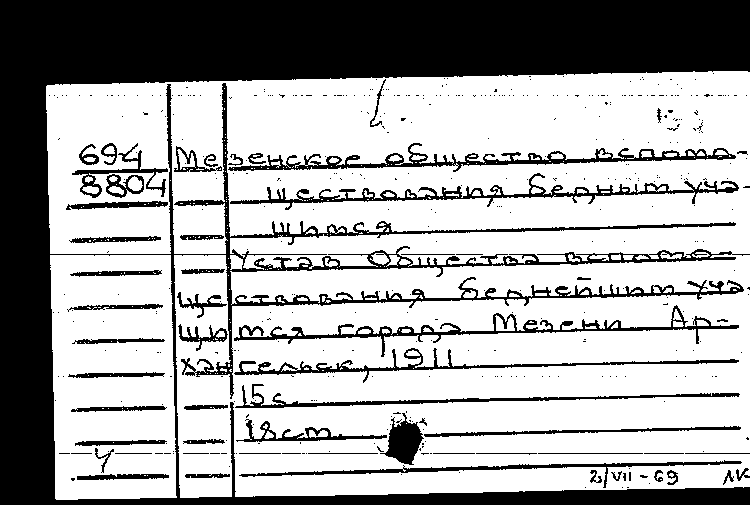 694
8804
Мезенское общество вспомо-
ществования бедным уча-
щимся
Устав Общества вспомо-
ществования беднейшим уча-
щимся города Мезени Ар-
хангельск, 1911.
15 с.
18 cm.
Ч
2/VII - 69